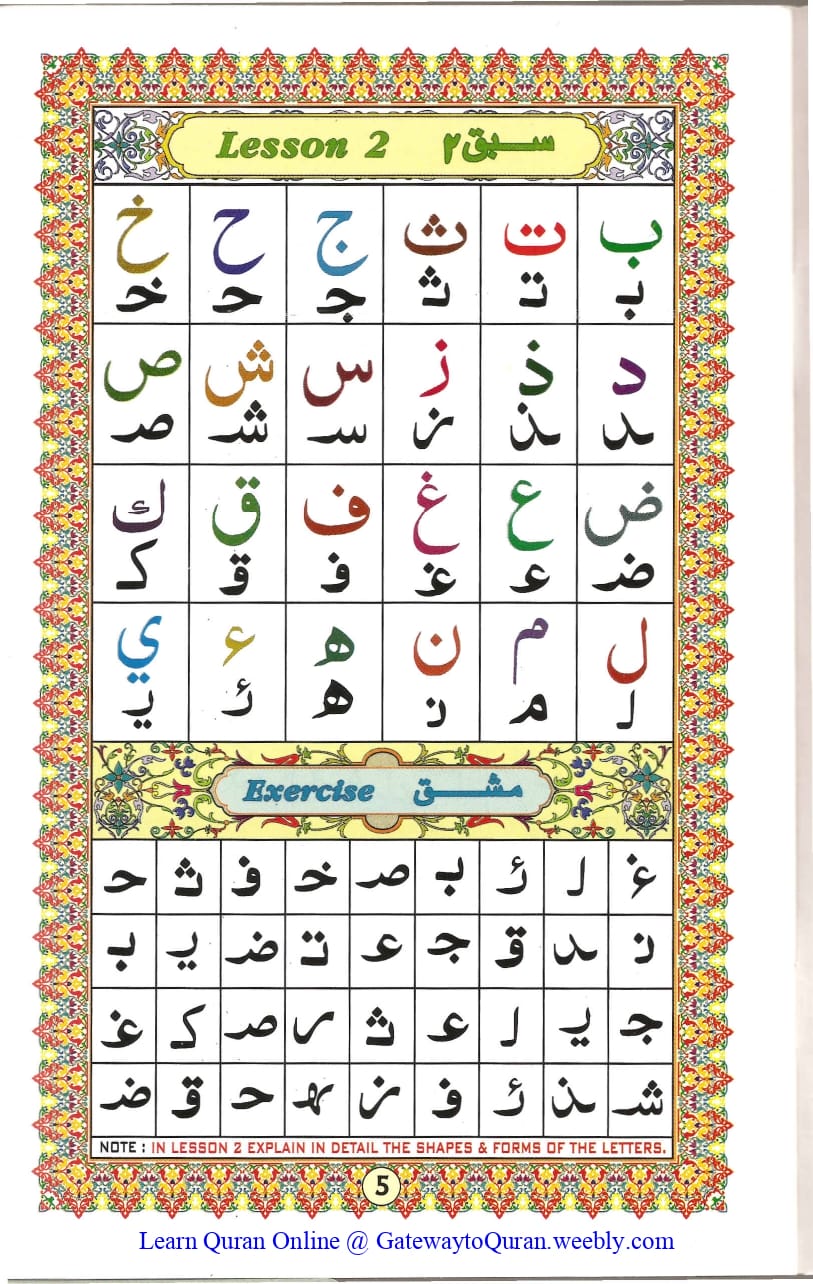 Lesson 2 سبق ۲
ب ت ث ج ح خ
بـ تـ ثـ جـ حـ خـ
د ذ ز س ش ص
ـد ـذ ـز سـ شـ صـ
ض ع غ ف ق ك
ضـ عـ غـ فـ قـ كـ
ل م ن ه ء ي
لـ مـ نـ هـ ئـ يـ
Exercise مشق
غـ لـ ئـ بـ صـ خـ فـ ثـ حـ
نـ ـد قـ جـ عـ تـ ضـ يـ بـ
جـ يـ لـ عـ ثـ ـر صـ كـ غـ
شـ ـذ ئـ فـ ـز ـهـ حـ قـ ضـ
NOTE : IN LESSON 2 EXPLAIN IN DETAIL THE SHAPES & FORMS OF THE LETTERS.
5
Learn Quran Online @ GatewaytoQuran.weebly.com